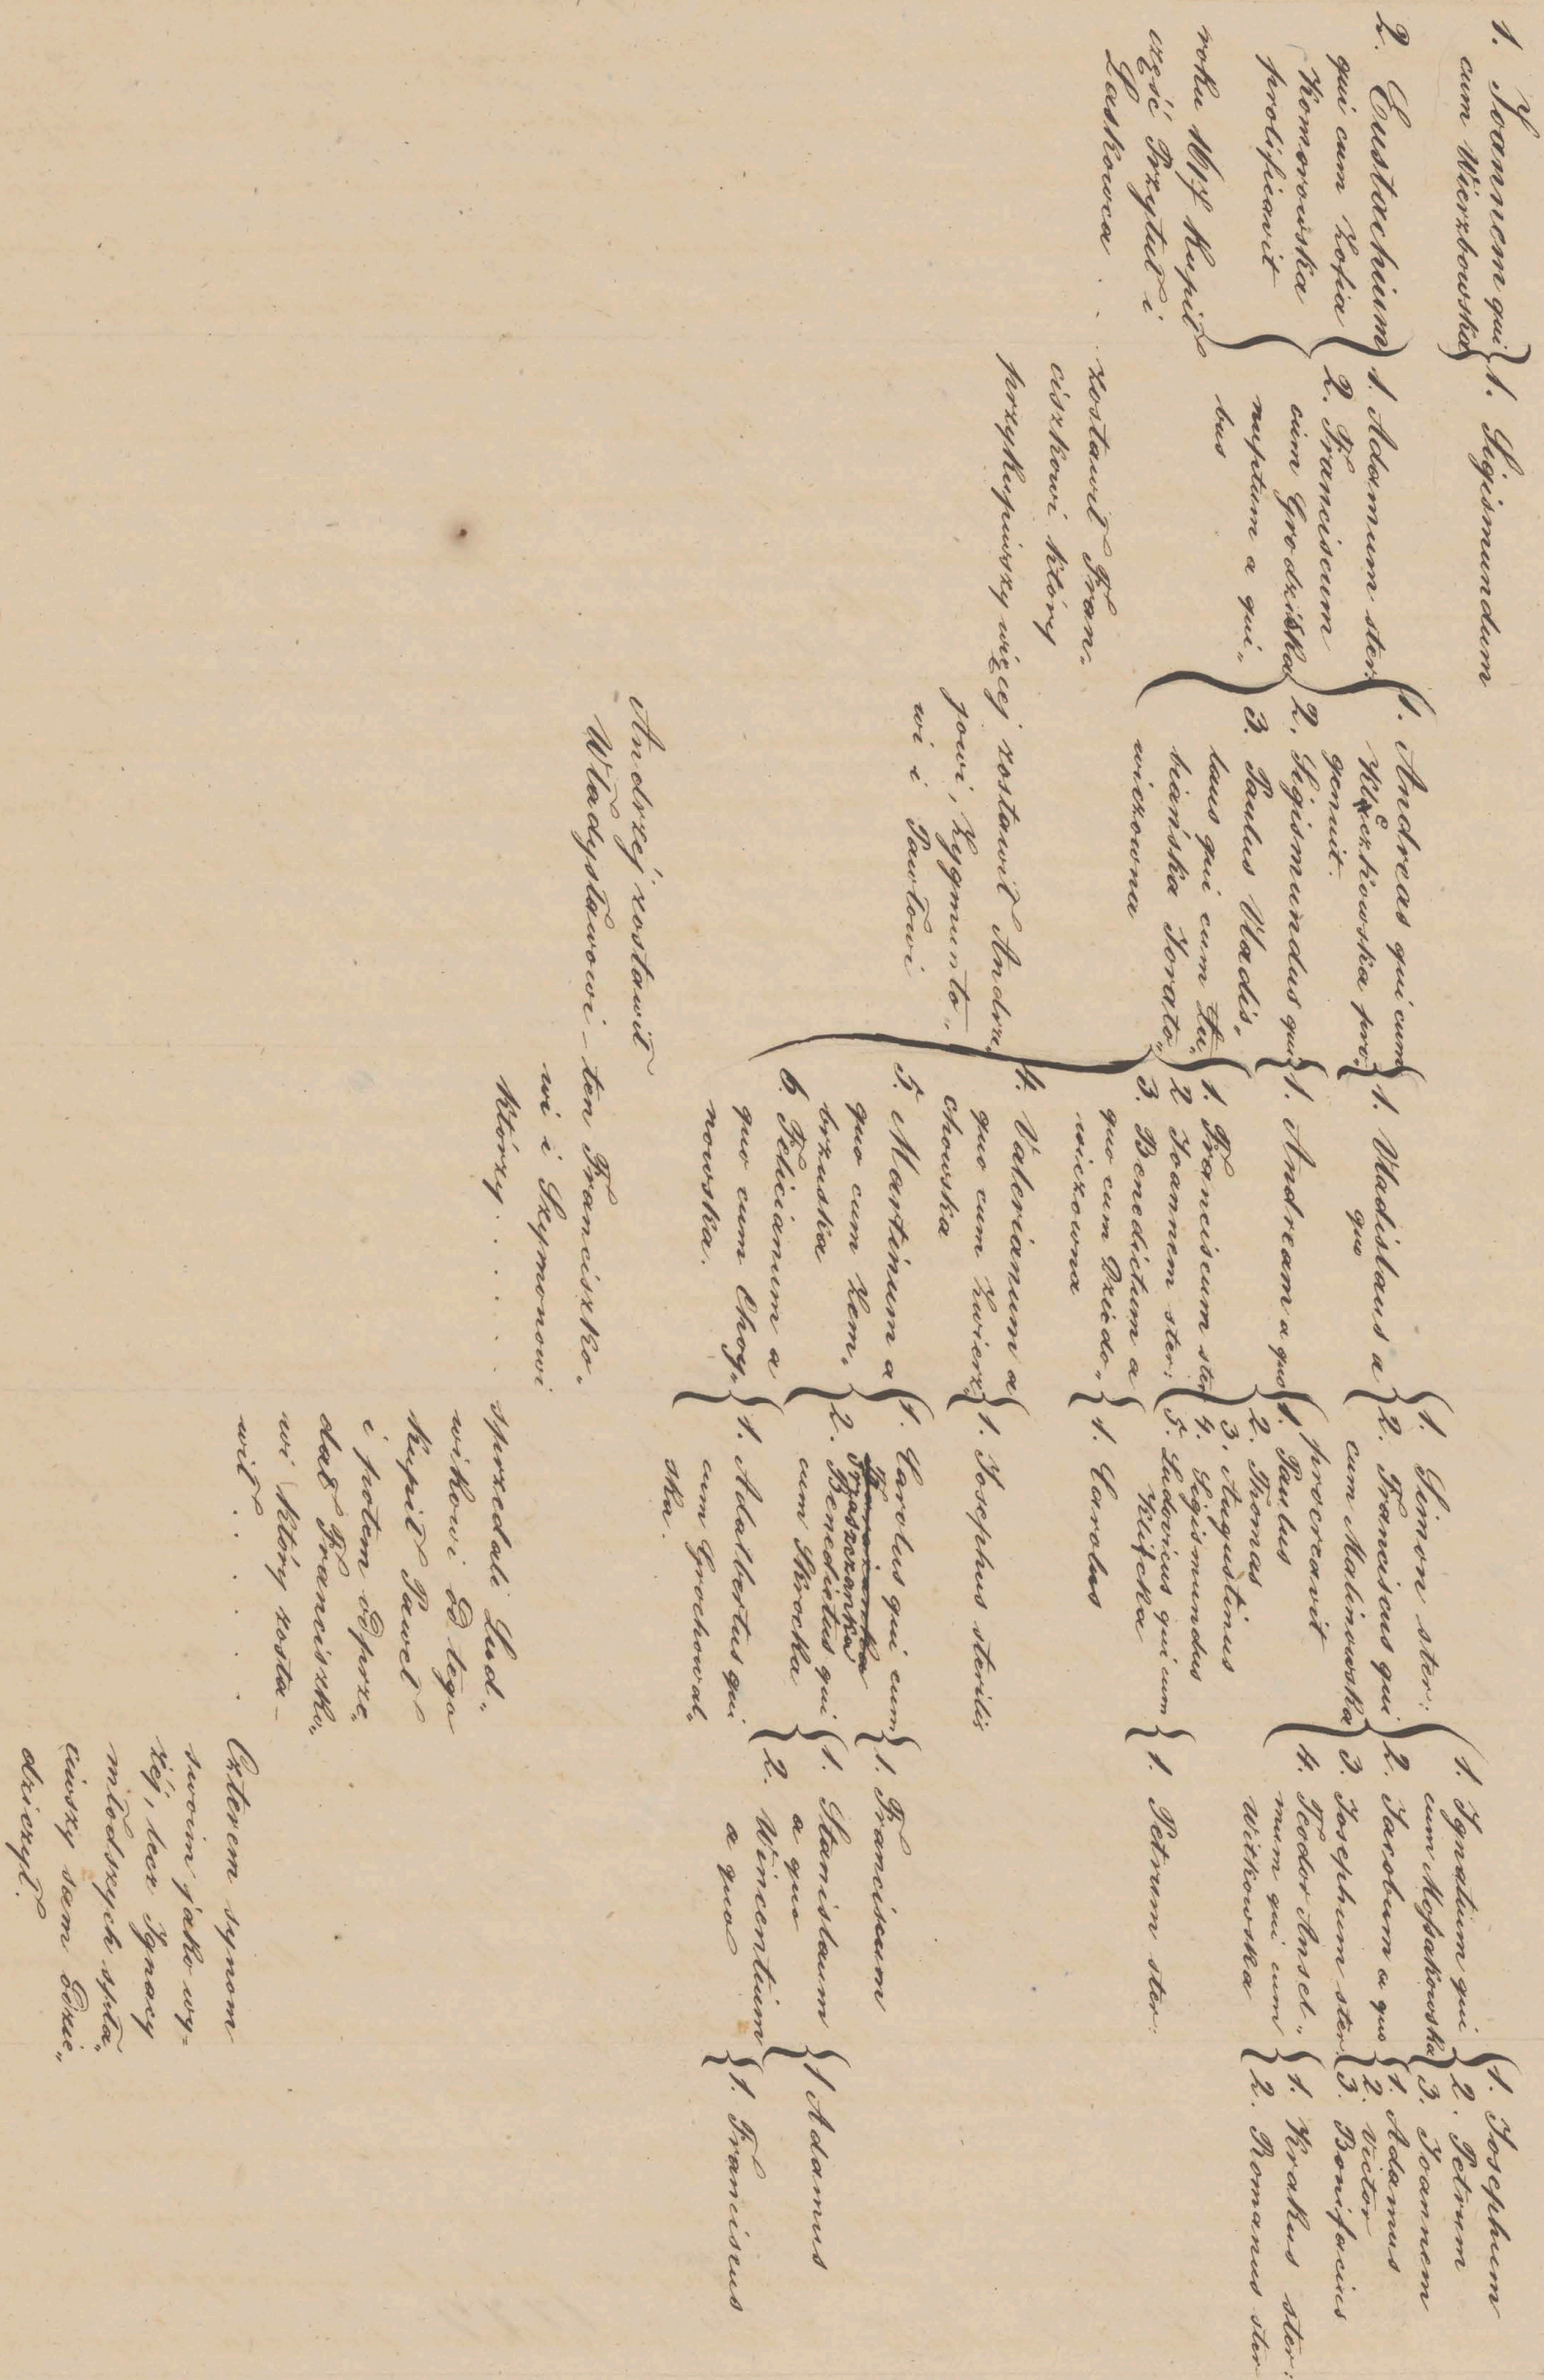 1. Joannem qui
cum Wierzbowska
2. Eustachium
qui cum Zofia
Komorowska
prolificavit
roku 1617 kupił
część Przytuł i
Laskowca . .
1. Sigismundum
1. Adamum ster:
2. Franciscum
cum Grodziska
nuptum a qui„
bus
zostawił Fran„
ciszkowi który
przykupiwszy więcej zostawił Andrze„
jowi, Zygmunto„
wi i Pawłowi
1. Andreas qui cum
Kleczkowska pro„
genuit.
2. Sigismundus qui
3. Paulus Vladis„
laus qui cum Łu„
biańska Jorato„
wiczowna
Andrzej zostawił
Władysławowi – ten Franciszko„
wi i Szymonowi
którzy . . . .
1. Vladislaus a
quo
1. Andream a quo
1. Franciscum ster
2 Joannem ster:
3. Benedictum a
quo cum Dziedo„
wiczowna
4. Valerianum a
quo cum Zwierz„
chowska
5. Martinum a
quo cum Zem„
brzuska
6. Felicianum a
quo cum Choy„
nowska.
1. Simon ster:
2. Franciscus qui
cum Malinowska
procreavit
1. Paulus
2. Thomas
3. Augustinus
4. Sigismundus
5. Ludovicus qui cum
Klicka
1. Carolus
1. Josephus sterilis
1. Carolus qui cum
Traszczanka
2. Benedictus qui
cum Skrocka
1. Adalbertus qui
cum Grochowal„
ska.
sprzedali Lud„
wikowi od tego
kupił Paweł
i potem odprze„
dał Franciszko„
wi który zosta–
wił . . . . .
1. Ignatium qui
cum Mossakowska
2. Jacobum a quo
3. Josephum ster:
4. Teodor Ansel„
mum qui cum
Witkowska
1. Petrum ster:
1. Franciscum
1. Stanislaum
a quo
2. Wincentium
a quo
Czterem synom
swoim jako wy–
żéj, lecz Ignacy
młodszych spła„
ciwszy sam odzie„
dziczył.
1. Josephum
2. Petrum
3. Joannem
1. Adamus
2. Victor
3. Bonifacius
1. Krakus ster:
2. Romanus ster
1 Adamus
1. Franciscus